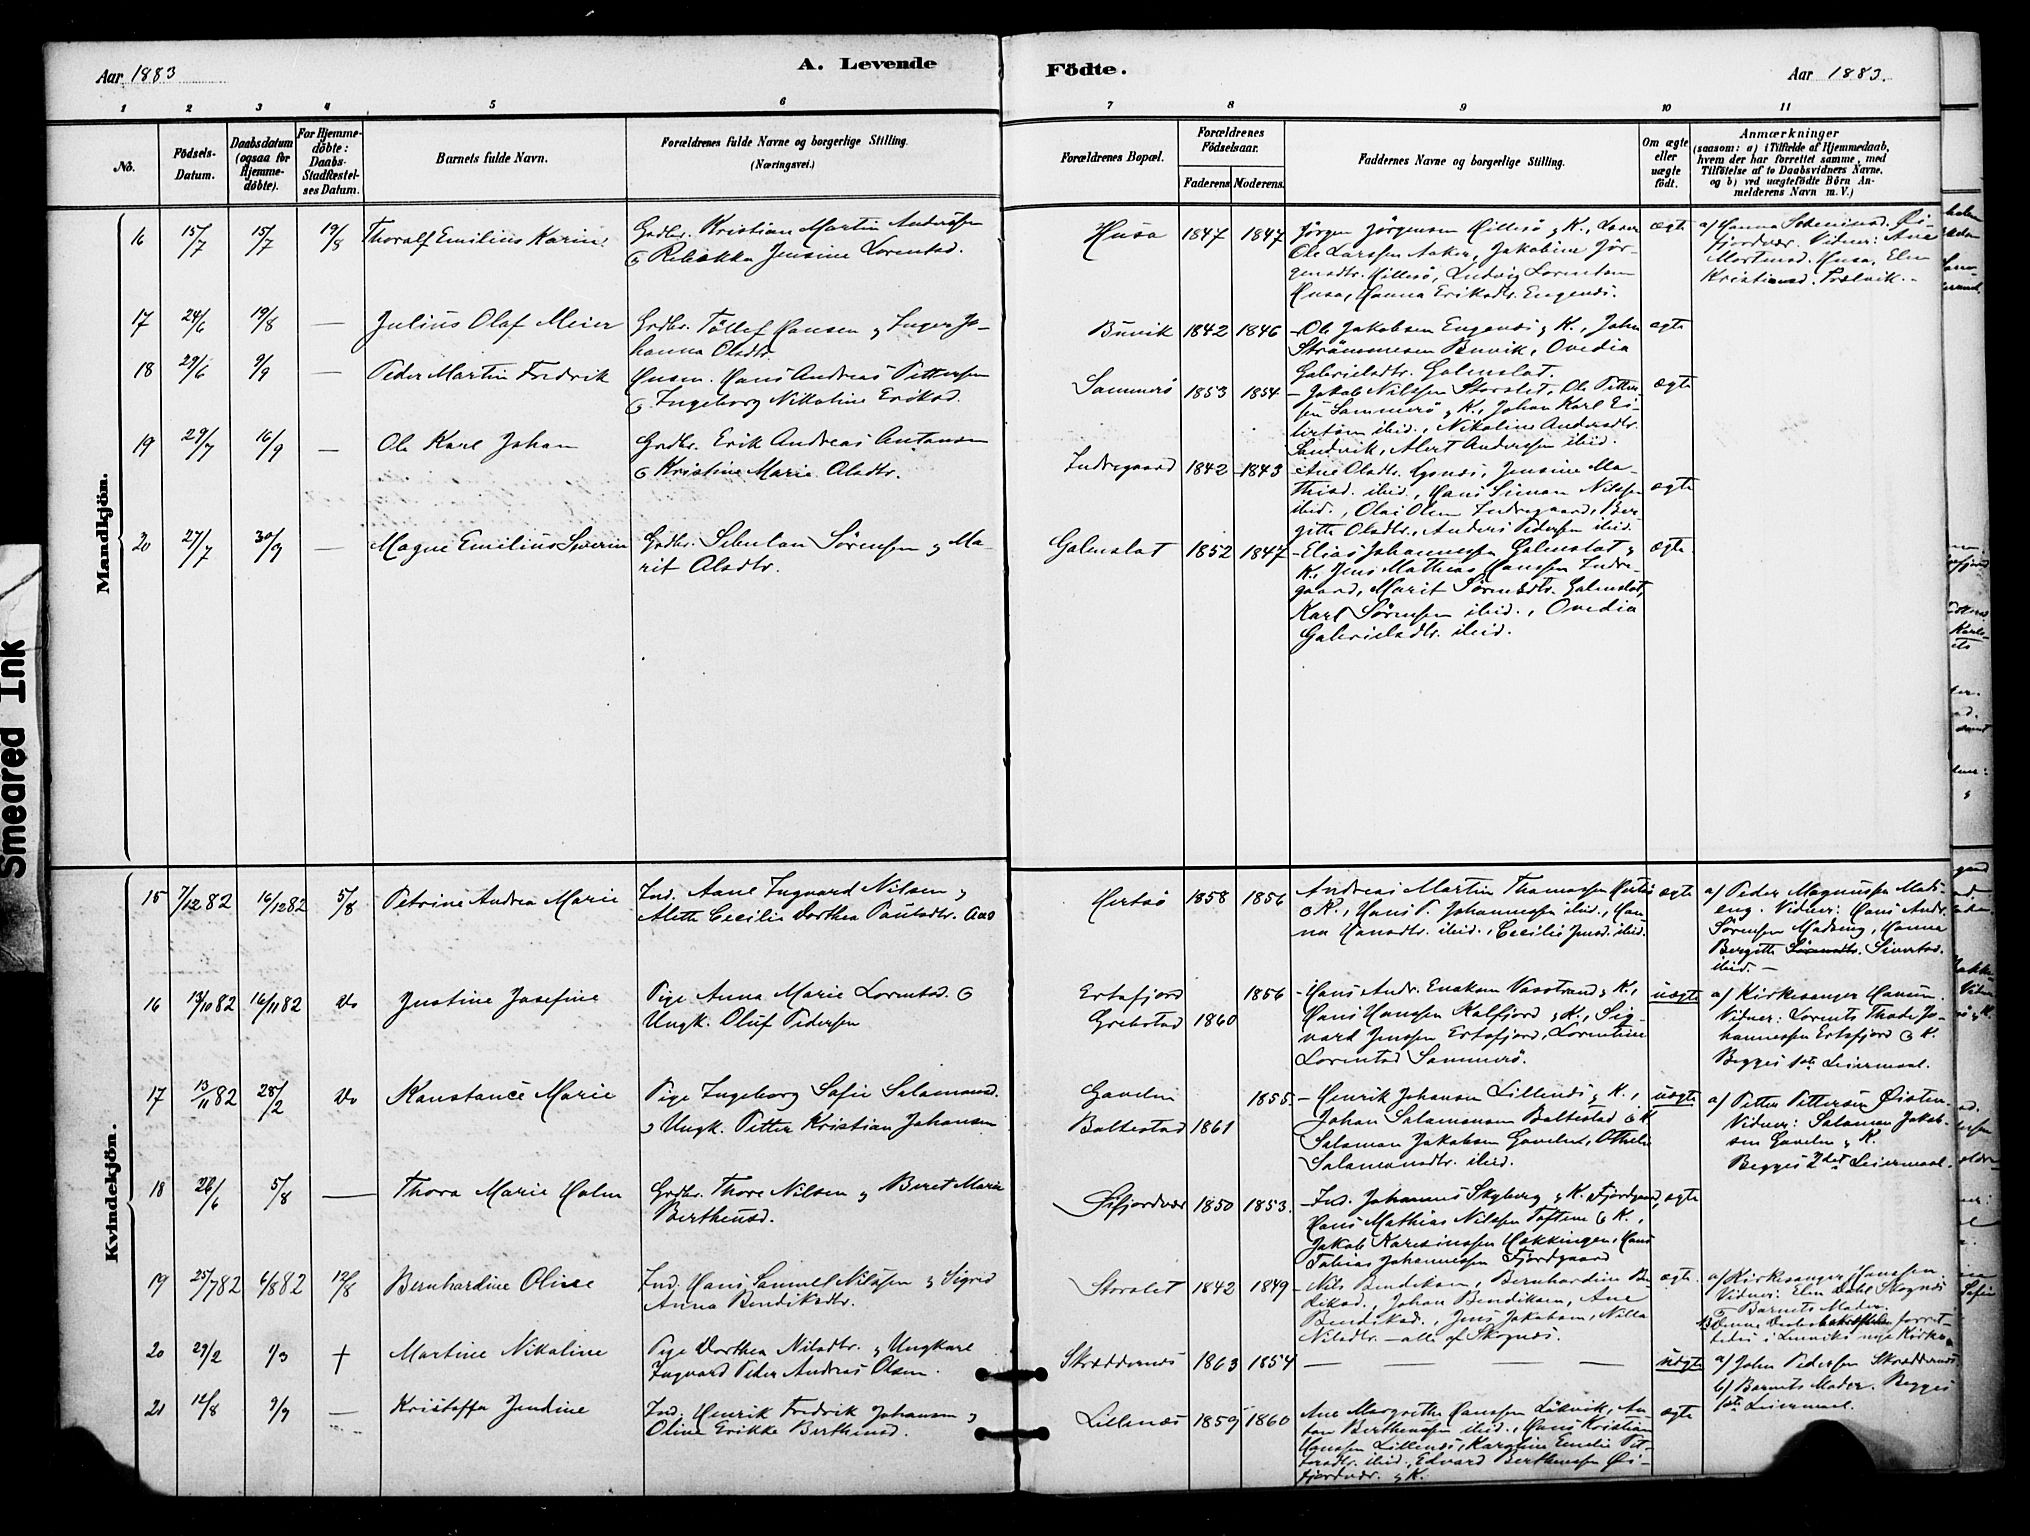 Aar 1883
A. Levende
Födte.
Aar 1883.
1 2 3 4 5 6 7 8 9 10 11
No.
Födsels-
Datum.
Daabsdatum
(ogsaa for
Hjemme-
döbte).
For Hjemme-
döbte:
Daabs-
Stadfæstel-
ses Datum.
Barnets fulde Navn.
Forældrenes fulde Navne og borgerlige Stilling.
(Næringsvei.)
Forældrenes Bopæl.
Forældrenes
Födselsaar.
Faderens Moderens.
Faddernes Navne og borgerlige Stilling.
Om ægte
eller
uægte
födt.
Anmærkninger
(saasom: a) i Tilfælde af Hjemmedaab,
hvem der har forrettet samme, med
Tilföielse af to Daabsvidners Navne,
og b) ved uægtefödte Börn An-
melderens Navn m. V.)
Mandkjön.
16 15/7 15/7 19/8 Thoralf Emilius Karin
Grdbr. Kristian Martin Andersen
Jensine Lorentsd.
Husa 1847 1847
Jörgen Jörgensen Hillesö & K.,
Ole Larssen Aaker, Jakobine Jör-
gensdtr. Hillesö, Ludvig Lorentsen
Husa, Hanna Eriksdtr. Engenes.
ægte
Mortensd. Husa, Elen
17 24/6 19/8 — Julius Olaf Meier
Grdbr. Töllef Hansen & Inger Jo-
hanna Olsdtr.
Buvik 1842 1846
Ole Jakobsen Engenes & K., John
Strömmesen Buvik, Ovedia
Gabrielsdtr. Galmslat.
ægte
18 29/6 9/9 — Peder Martin Fredrik
Husm. Hans Andreas Pettersen
& Ingeborg Nikoline Eriksd.
Sommerö 1853 1854
Jakob Nilssen Storslet, Ole Petter-
sen Sommerö & K., Johan Karl
ibid., Nikoline Andersdtr.
Sandvik, Albert Anderssen ibid.
ægte
19 29/7 16/9 — Ole Karl Johan
Grdbr. Erik Andreas Antonsen
& Kristine Marie Olsdtr.
Indregaard 1842 1843
Ane Olsdtr. Gjones, Jensine Ma-
thisd. ibid., Hans Simon Nilssen
ibid., Olai Olsen Indregaard, Ber-
gitte Olsdtr., Anders Pedersen ibid.
ægte
20 27/7 30/9 — Magne Emilius Severin
Grdbr. Sebulon Sörensen & Ma-
rit Olsdtr.
Galmslat 1852 1847
Elias Johannessen Galmslat &
K., Jens Mathias Hanssen Indre-
gaard, Marit Sörensdtr. Galmslat,
Karl Sörensen ibid., Ovedia
Gabrielsdtr. ibid.
ægte
Kvindekjön.
15 7/12 82 16/12 82 5/8 Petrine Andrea Marie
Ind. Aane Ingvard Nilsen &
Aleth Cecilie Dorthea Paulsdtr. Aas
Hertsö 1858 1856
Andreas Martin Thomassen Hertsö
& K., Hans P. Johannessen ibid., Han-
na Hansdtr. ibid., Cecilie Jensd. ibid.
ægte
a/ Peder Magnussen Mads-
eng. Vidner: Hans Andr.
Sörensen Madseng, Hanna
Bergitte Sörensdtr. Sivertsd.
ibid. —
16 13/10 82 16/11 82 Do Justine Josefine
Pige Anna Marie Lorentsd. &
Ungk. Oluf Pedersen
Ertsfjord 1856
Grebstad 1860
Hans Andr. Enoksen Vasstrand & K.,
Hans Hanssen Kalfjord & K., Sig-
vard Jenssen Ertsfjord, Lorentine
Lorentsd Sommerö.
uægte
a/ Kirkesanger Hanssen.
Vidner: Lorents Thode Jo-
hannessen Ertsfjord & K.
Begges 1ste Leiermaal.
17 13/11 82 28/2 Do Konstance Marie
Pige Ingeborg Sofie Salamonsd.
& Ungk. Petter Kristian Johansen
Gavelen 1855.
Baltestad 1861
Henrik Johansen Lillenes & K.,
Johan Salamonsen Baltestad & K.
Salamon Jakobsen Gavelen,
Salamonsdtr. ibid.
uægte
a/ Petter Pettersen Öisten.
Vidner: Salamon Jakob-
sen Gavelen & K.
Begges 2det Leiermaal.
18 26/6 5/8 — Thora Marie Holm
Grdbr. Thore Nilsen & Beret Marie
Berthensd.
Öifjordvær 1850 1853.
Ind. Johannes Skyberg & K. Fjordgaard,
Hans Mathias Nilssen Toften & K.,
Jakob Karesiussen Hekkingen, Hans
Tobias Johannessen Fjordgaard
ægte
19 25/7 82 6/8 82 12/8 Bernhardine Oline
Ind. Hans Samuel Nilssen & Sigrid
Anna Bendiksdtr.
Storslet 1842 1849
Nils Bendiksen, Bernhardine Ben-
diksd., Johan Bendiksen, Ane
Bendiksd., Jens Jakobsen,
Nilsdtr. — alle af Skognes.
ægte.
a/ Kirkesanger Hanssen
Vidner: Elen Dahl Skognes
Barnets Moder.
forret-
tedes i Lenviks nye Kirke.
20 29/2 1/3 † Martine Nikoline
Pige Dorthea Nilsdtr. & Ungkarl
Ingvard Peder Andreas Olsen.
Skræddernes 1863 1854 — — — —
uægte
a/ John Pedersen Skræddernes
b/ Barnets Moder. Begges
1ste Leiermaal.
21 12/8 9/9 — Kristoffa Jendine
Ind. Henrik Fredrik Johansen &
Oline Erikke Berthensd.
Lillenes 1859 1860
Ane Margrethe Hanssen Lökvik, An-
ton Berthenssen ibid., Hans Kristian
Hanssen Lillenes, Karoline Emelie Pet-
tersdtr. ibid., Edvard Berthenssen Öi-
fjordvær. & K.
ægte
Smeared Ink